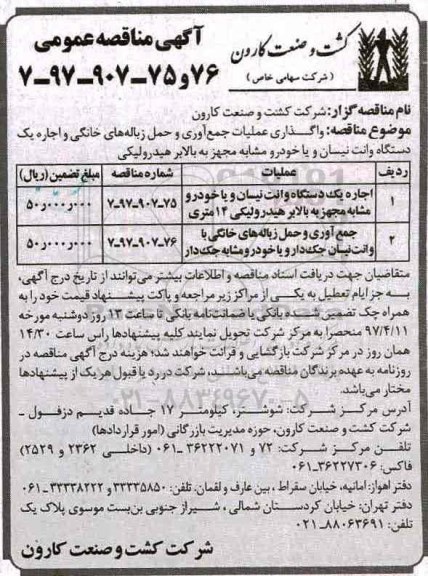 کشت و صنعت کارون
( شرکت سهامی خاص )
آگهی مناقصه عمومی
۷۶ و ۷۵-۹۰۷-۹۷-۷
نام مناقصه گزار: شرکت کشت و صنعت کارون
موضوع مناقصه: واگذاری عملیات جمع‌آوری و حمل زباله‌های خانگی و اجاره یک
دستگاه وانت نیسان و یا خودرو مشابه مجهز به بالابر هیدرولیکی
ردیف عملیات شماره مناقصه مبلغ تضمین (ریال)
۱ اجاره یک دستگاه وانت نیسان و یا خودرو مشابه مجهز به بالابر هیدرولیکی ۱۴ متری ۷۵-۹۰۷-۹۷-۷ ۵۰ر۰۰۰ر۰۰۰
۲ جمع آوری و حمل زباله های خانگی با وانت نیسان جک‌دار و یا خودرو مشابه جک‌دار ۷۶-۹۰۷-۹۷-۷ ۵۰ر۰۰۰ر۰۰۰
متقاضیان جهت دریافت اسناد مناقصه و اطلاعات بیشتر می‌توانند از تاریخ درج آگهی،
به جز ایام تعطیل به یکی از مراکز زیر مراجعه و پاکت پیشنهاد قیمت خود را به
همراه چک تضمین شده بانکی یا ضمانت‌نامه بانکی تا ساعت ۱۳ روز دوشنبه مورخه
۹۷/۴/۱۱ منحصرا به مرکز شرکت تحویل نمایند کلیه پیشنهادها راس ساعت ۱۴/۳۰
همان روز در مرکز شرکت بازگشایی و قرائت خواهند شد؛ هزینه درج آگهی مناقصه در
روزنامه به عهده برندگان مناقصه می‌باشند، شرکت در رد یا قبول هر یک از پیشنهادها
مختار می‌باشد.
آدرس مرکز شرکت: شوشتر، کیلومتر ۱۷ جاده قدیم دزفول -
شرکت کشت و صنعت کارون، حوزه مدیریت بازرگانی (امور قراردادها)
تلفن مرکز شرکت: ۷۲ و ۳۶۲۲۲۰۷۱-۰۶۱ (داخلی ۲۳۶۲ و ۲۵۲۹)
فاکس: ۳۶۲۲۷۳۰۶-۰۶۱
دفتر اهواز: امانیه، خیابان سقراط ، بین عارف و لقمان. تلفن: ۳۳۳۳۵۸۵۰ و ۳۳۳۳۸۲۲۲-۰۶۱
دفتر تهران: خیابان کردستان شمالی ، شیراز جنوبی بن‌بست موسوی پلاک یک
تلفن: ۸۸۰۶۳۶۹۱-۰۲۱
شرکت کشت و صنعت کارون
۰۲۱-۸۸۳۴۹۶۷۰-۵